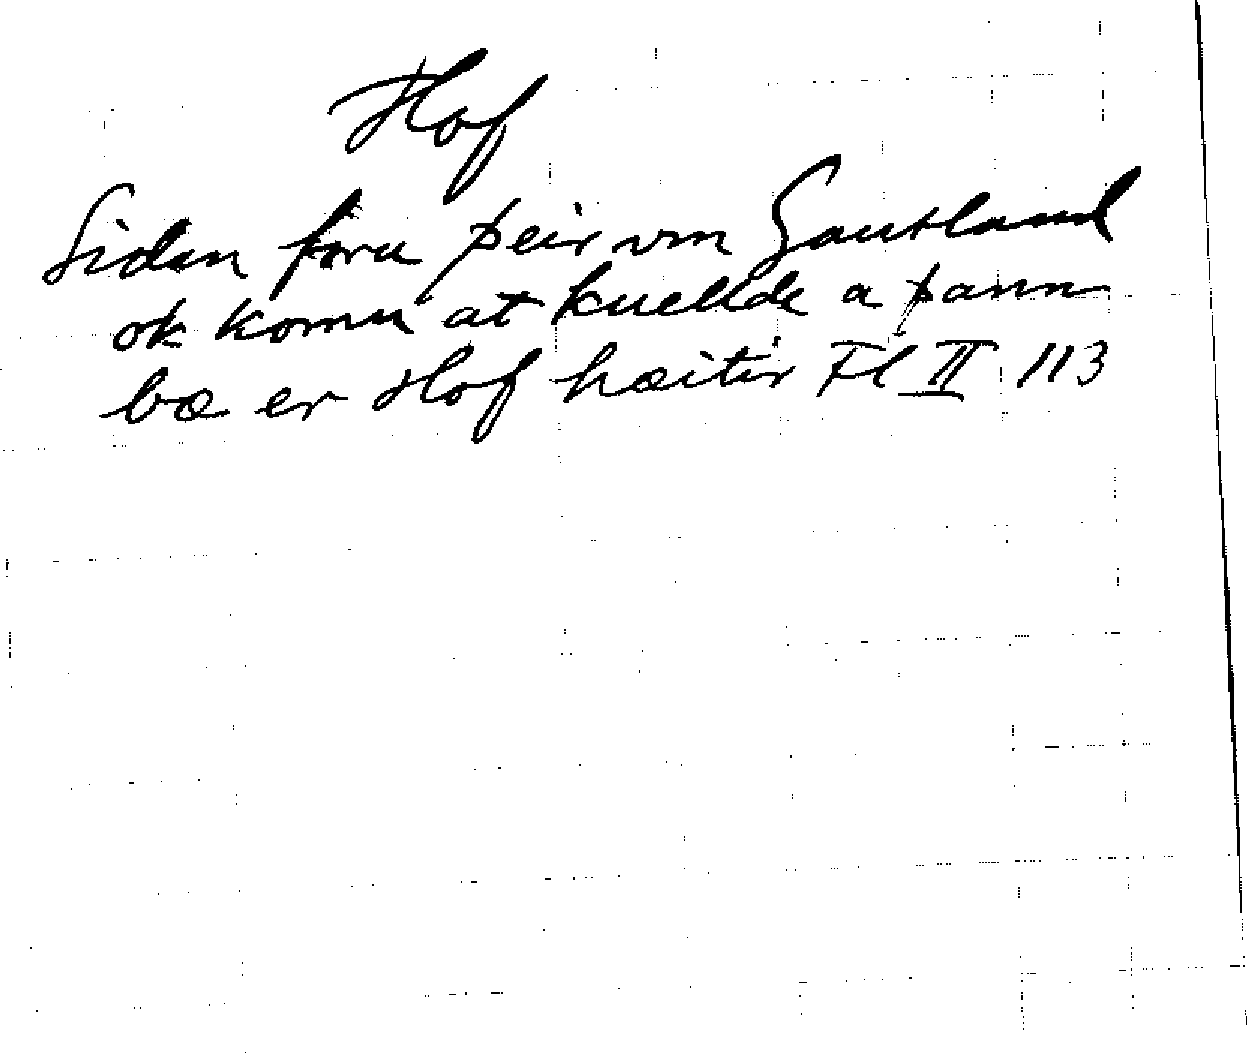 Hof
Sidan foru þeir vm Gautland
ok komu at kuellde a þann
bæ er Hof hæitir Fl II 113